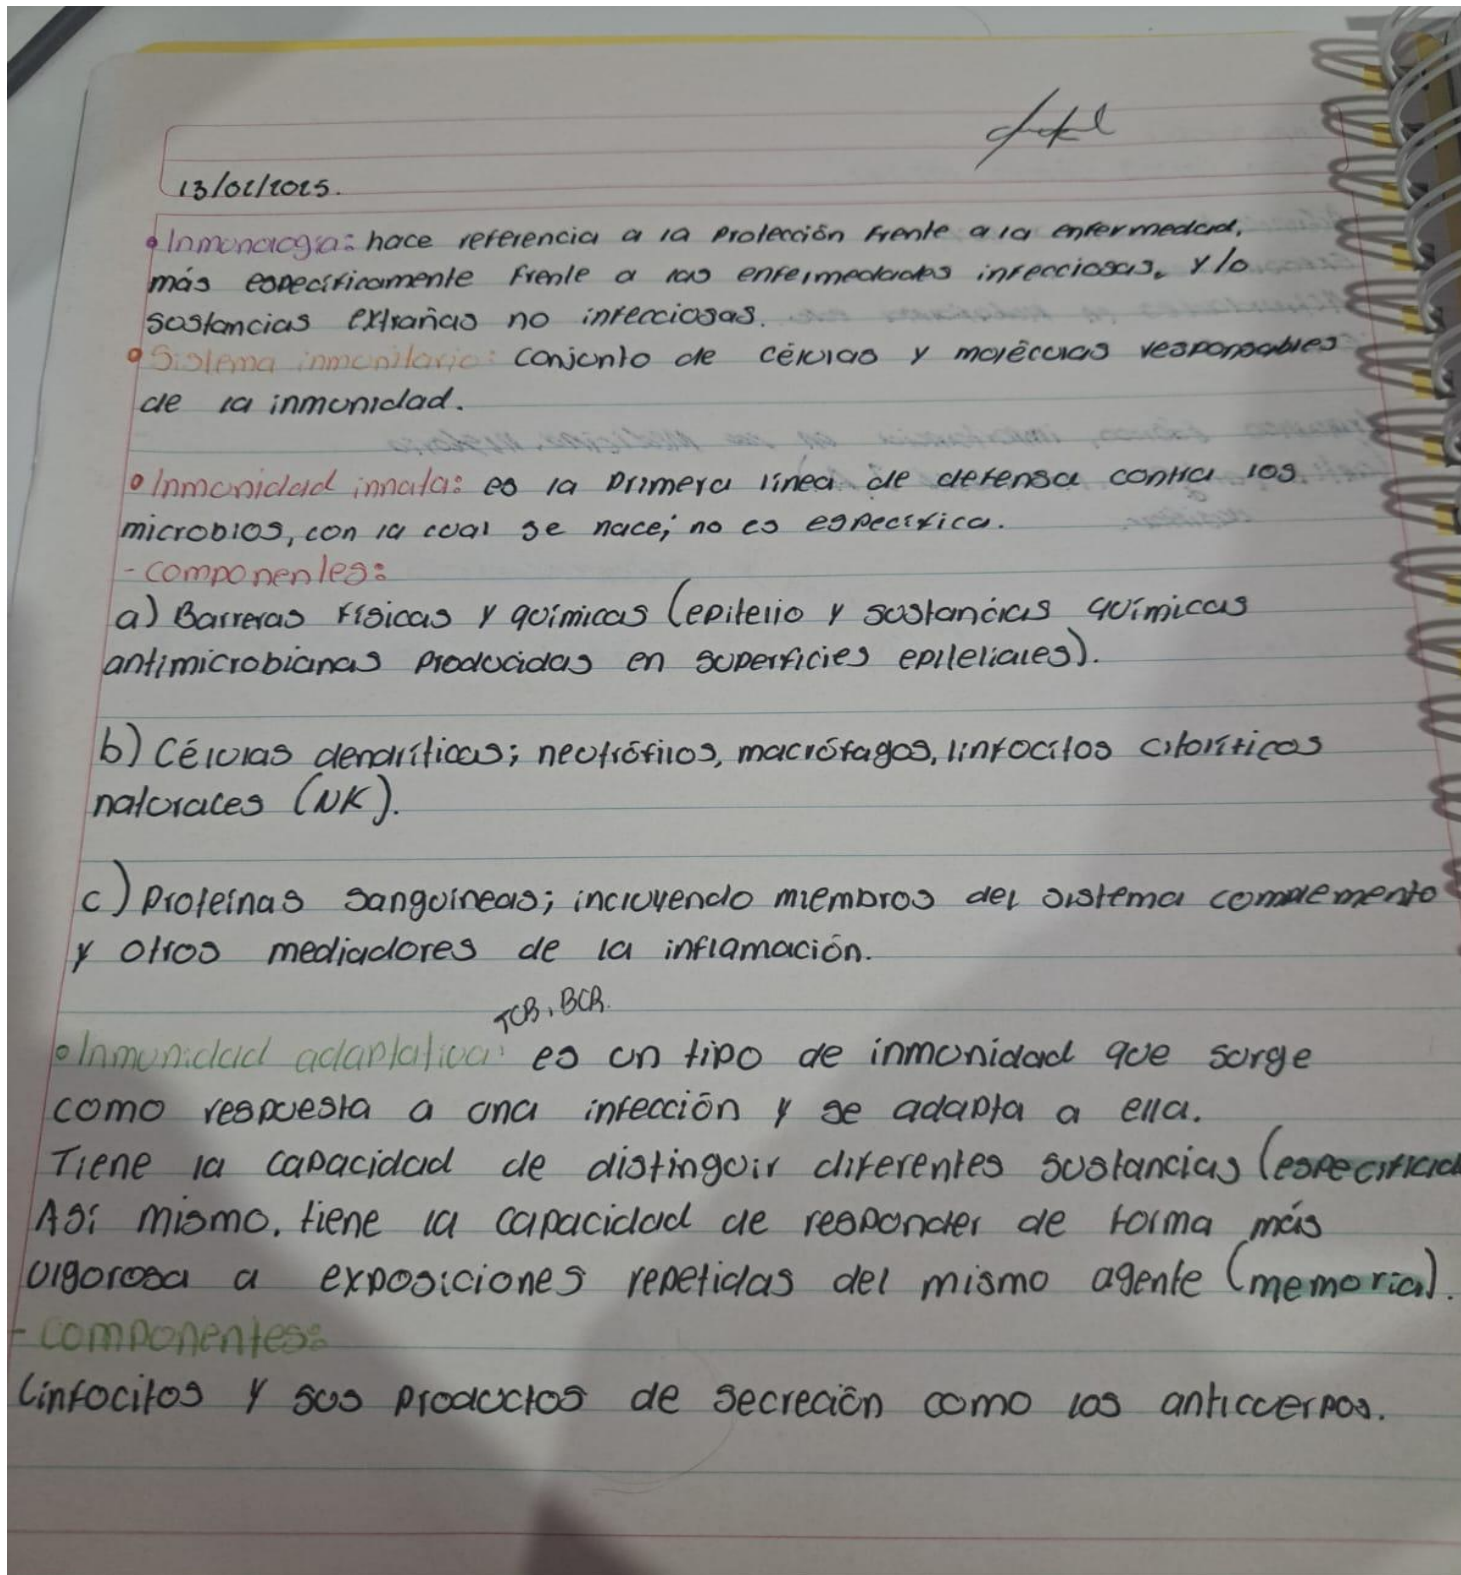 13/02/2025.
• Inmunología: hace referencia a la protección frente a la enfermedad,
más específicamente frente a las enfermedades infecciosas, y/o
sustancias extrañas no infecciosas.
• Sistema inmunitario: conjunto de células y moléculas responsables
de la inmunidad.
• Inmunidad innata: es la primera línea de defensa contra los
microbios, con la cual se nace; no es específica.
- componentes:
a) Barreras físicas y químicas (epitelio y sustancias químicas
antimicrobianas producidas en superficies epiteliales).
b) Células dendríticas; neutrófilos, macrófagos, linfocitos citolíticos
naturales (NK).
c) Proteínas sanguíneas; incluyendo miembros del sistema complemento
y otros mediadores de la inflamación.
TCR, BCR.
• Inmunidad adaptativa: es un tipo de inmunidad que surge
como respuesta a una infección y se adapta a ella.
Tiene la capacidad de distinguir diferentes sustancias (especificid
Así mismo, tiene la capacidad de responder de forma más
vigorosa a exposiciones repetidas del mismo agente (memoria).
- componentes:
Linfocitos y sus productos de secreción como los anticuerpos.